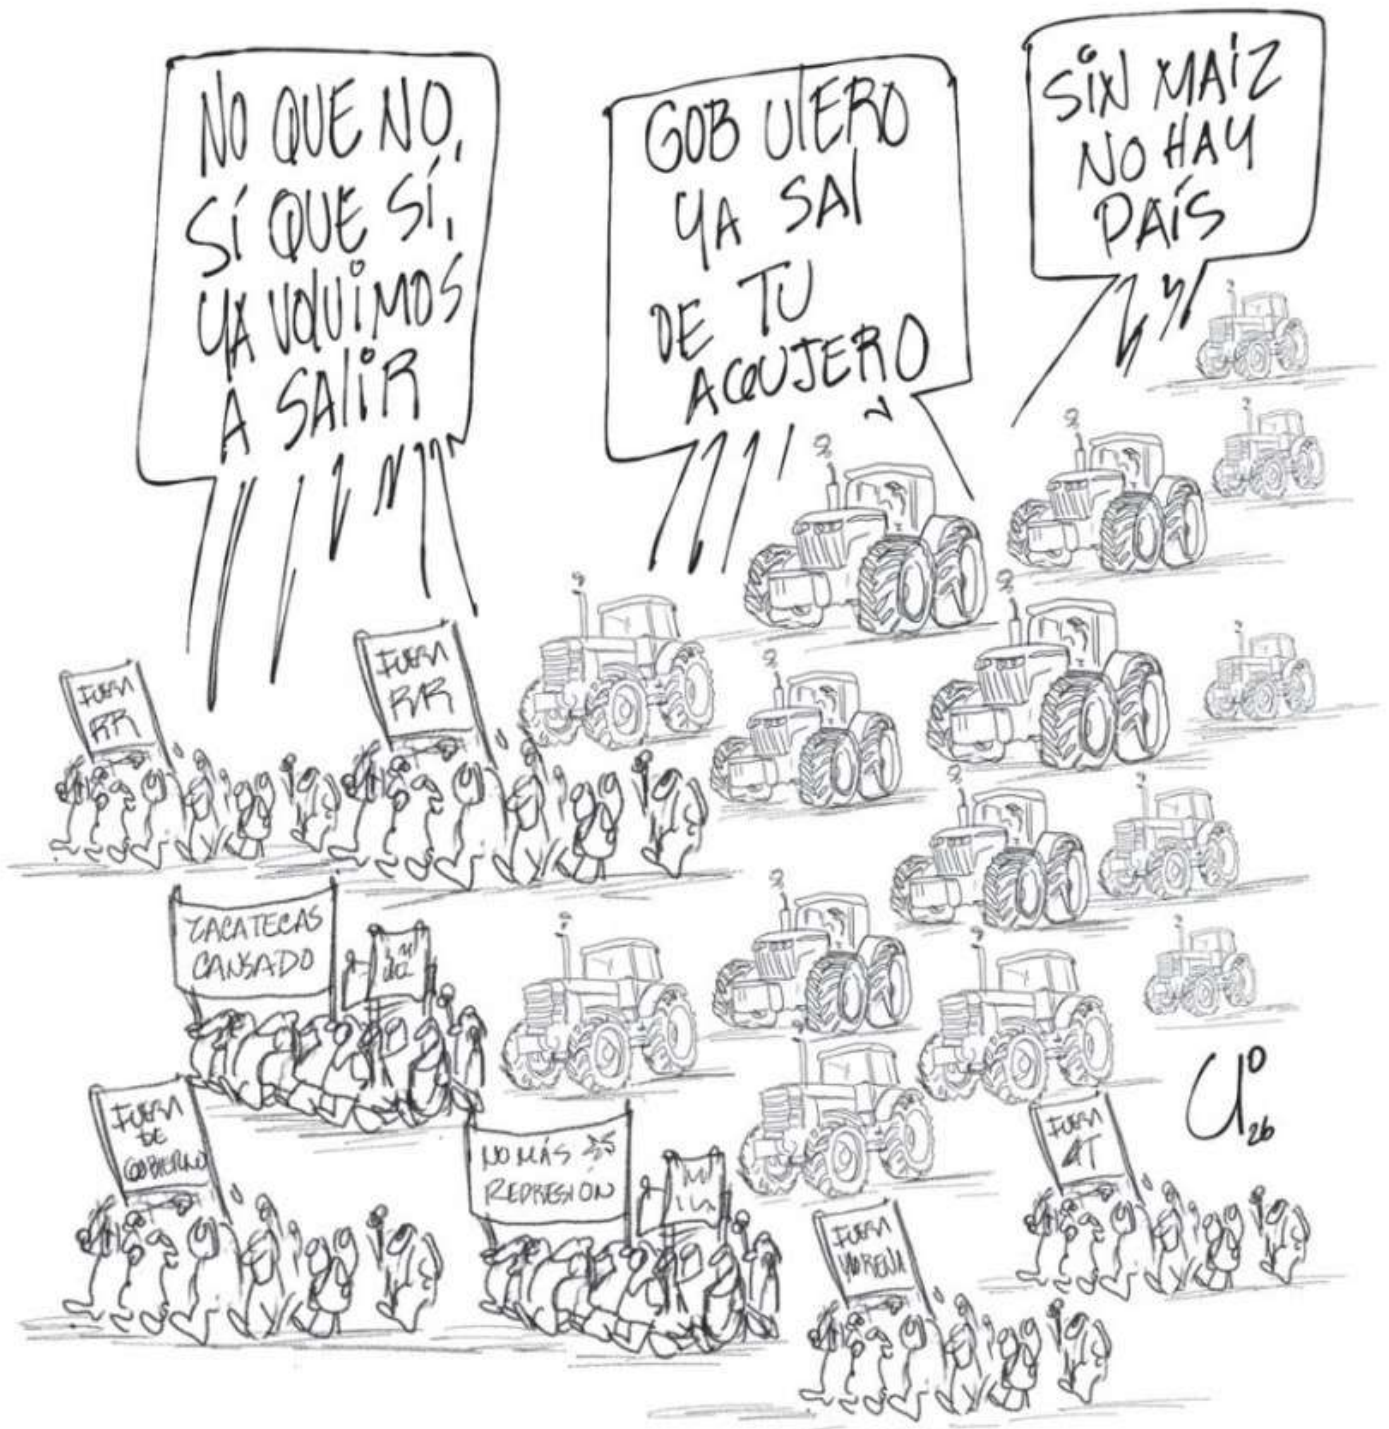 NO QUE NO,
SÍ QUE SÍ,
YA VOLVIMOS
A SALIR
GOB
YA SAL
DE TU
AGUJERO
SIN MAÍZ
NO HAY
PAÍS
FUERA
RR
FUERA
RR
ZACATECAS
CANSADO
FUERA
DE
GOBIERNO
NO MÁS
REPRESIÓN
FUERA
MORENA
FUERA
4T
26